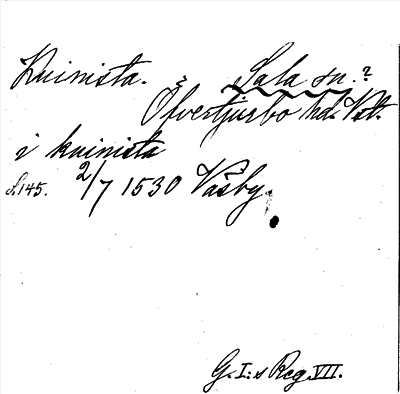 Kuinista. Sala sn.?
Öfvertjurbo hd. Vstl.
i kuinista
s. 145. 2/7 1530 Väsby.
G. I:s Reg. VII.